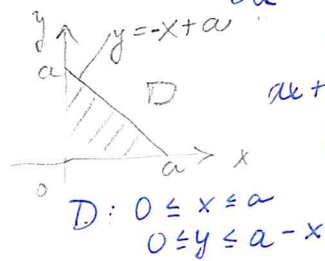 y
y = -x + a
a
D
a
x
0
D: 0 ≤ x ≤ a
0 ≤ y ≤ a - x